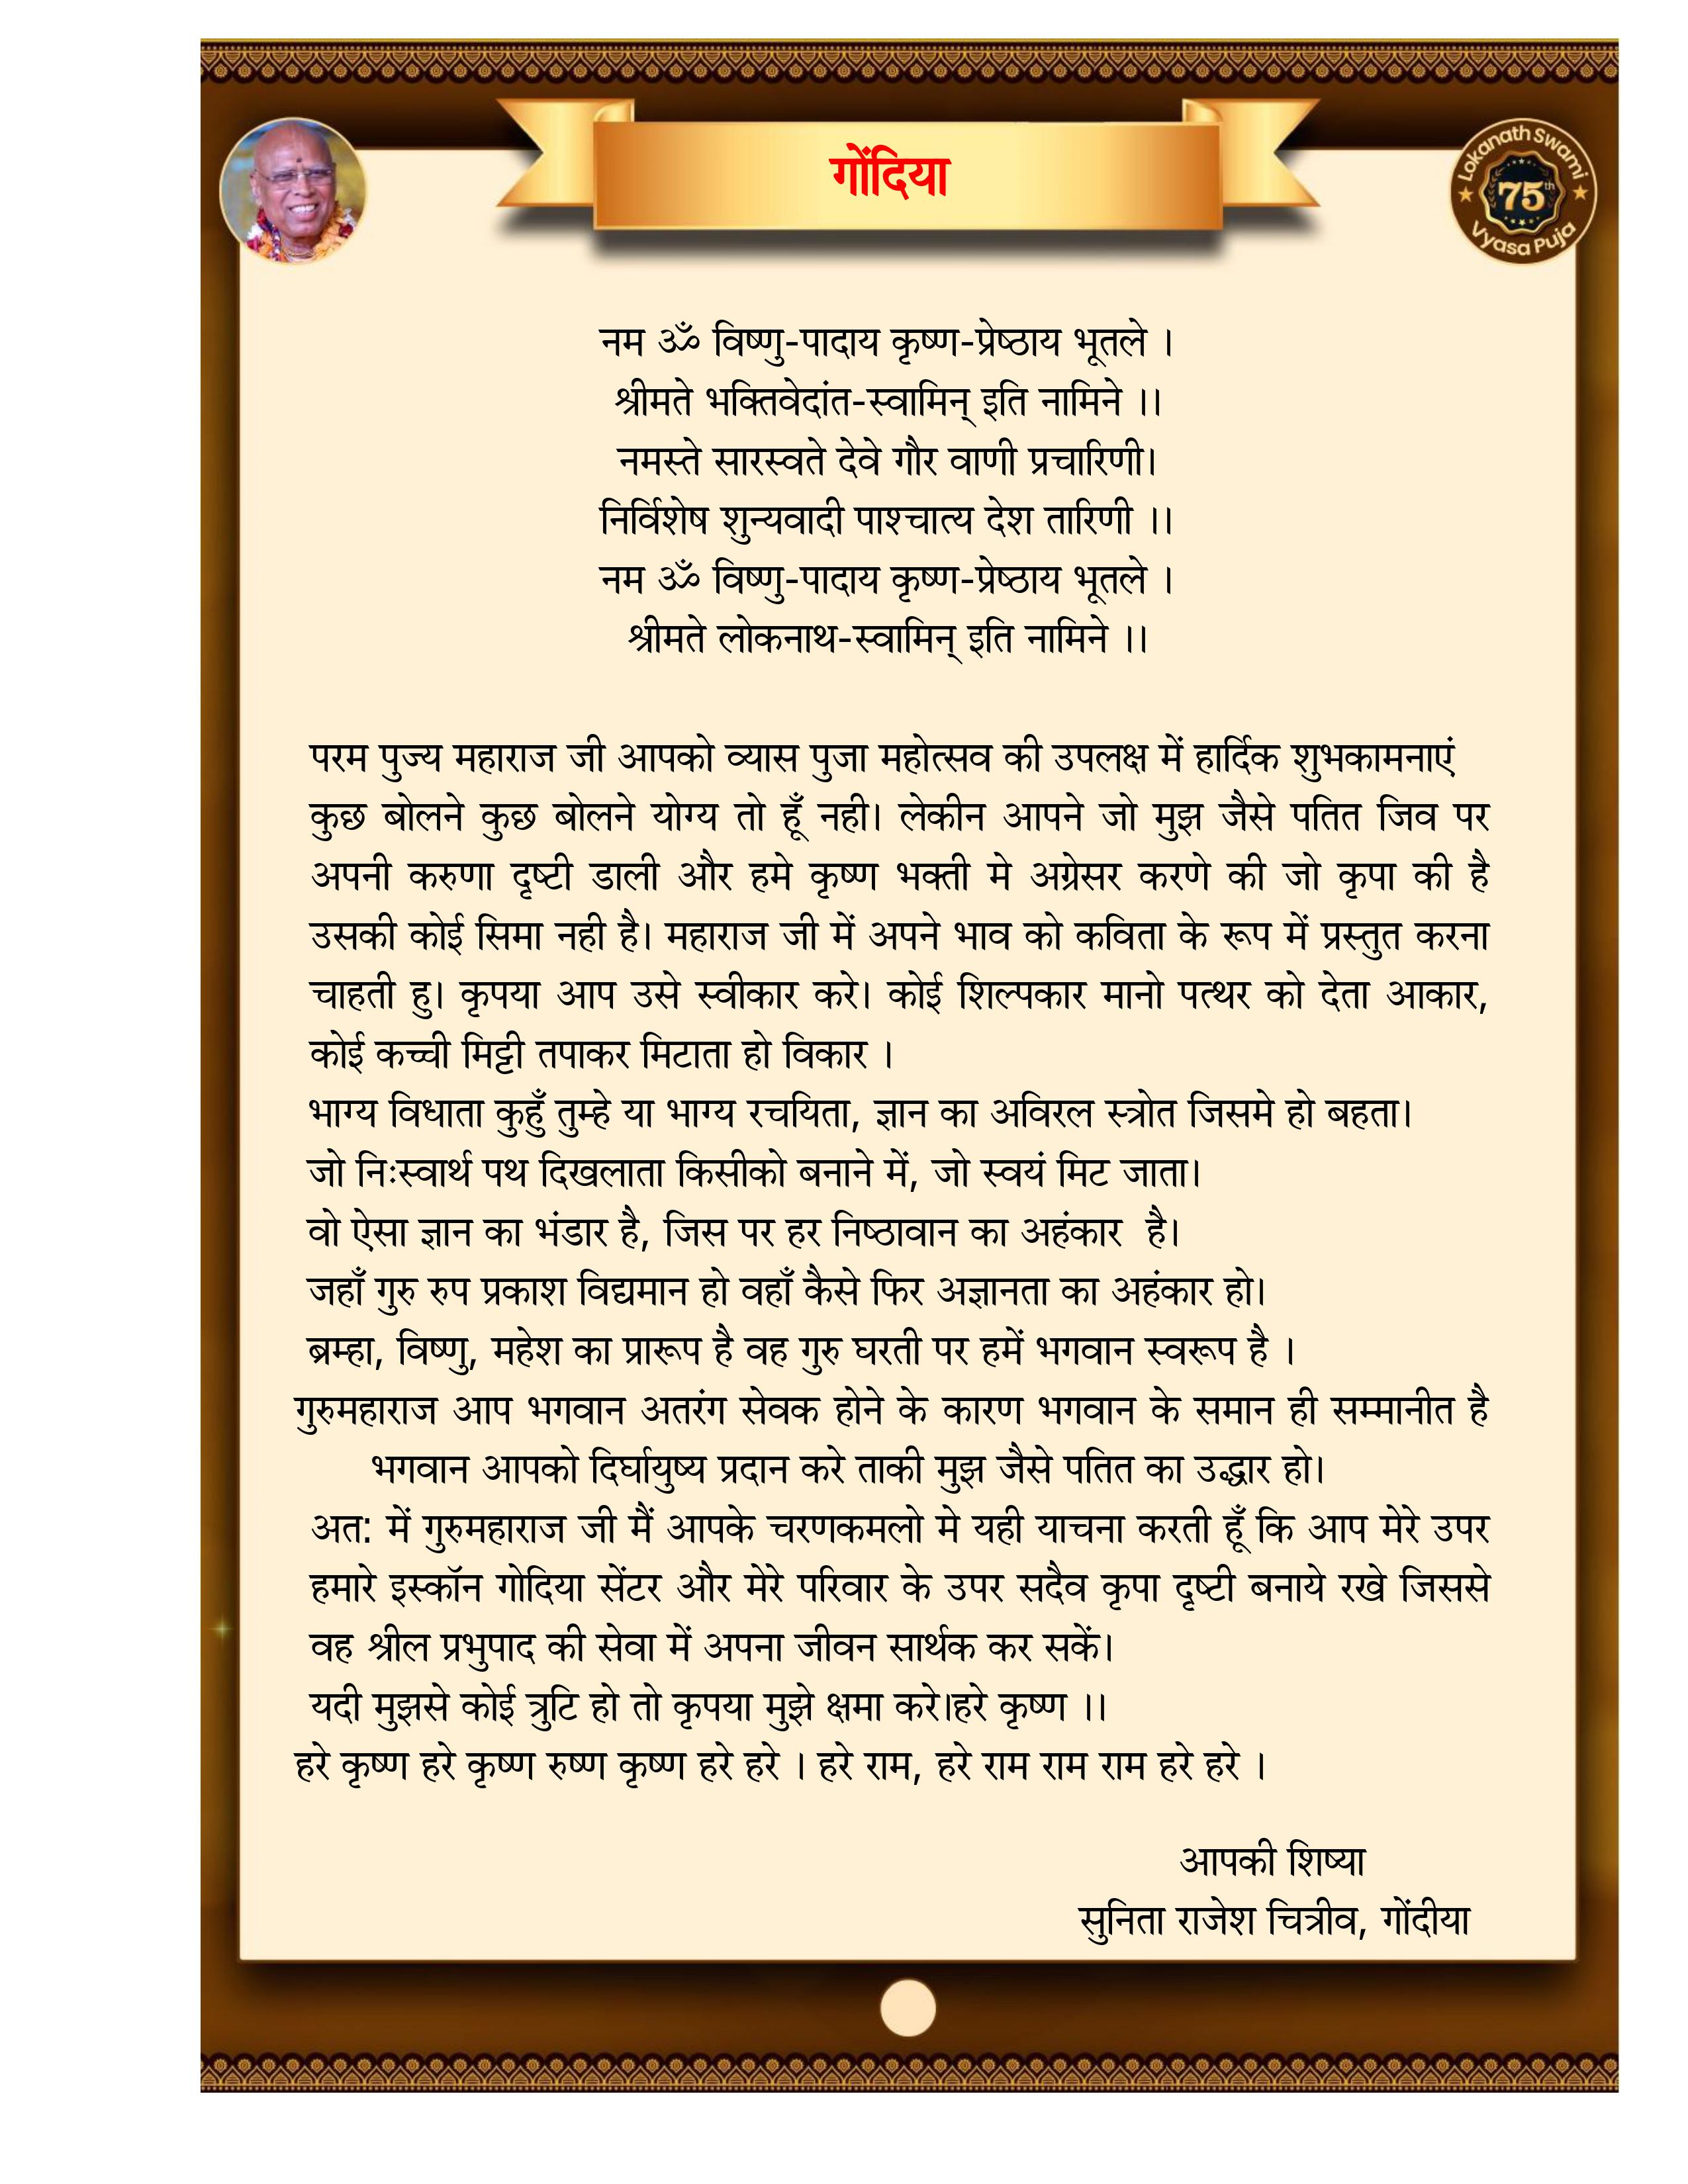 गोंदिया
Lokanath Swami
75th
Vyasa Puja
नम ॐ विष्णु-पादाय कृष्ण-प्रेष्ठाय भूतले ।
श्रीमते भक्तिवेदांत-स्वामिन् इति नामिने ।।
नमस्ते सारस्वते देवे गौर वाणी प्रचारिणी।
निर्विशेष शुन्यवादी पाश्चात्य देश तारिणी ।।
नम ॐ विष्णु-पादाय कृष्ण-प्रेष्ठाय भूतले ।
श्रीमते लोकनाथ-स्वामिन् इति नामिने ।।
परम पुज्य महाराज जी आपको व्यास पुजा महोत्सव की उपलक्ष में हार्दिक शुभकामनाएं
कुछ बोलने कुछ बोलने योग्य तो हूँ नही। लेकीन आपने जो मुझ जैसे पतित जिव पर
अपनी करुणा दृष्टी डाली और हमे कृष्ण भक्ती मे अग्रेसर करणे की जो कृपा की है
उसकी कोई सिमा नही है। महाराज जी में अपने भाव को कविता के रूप में प्रस्तुत करना
चाहती हु। कृपया आप उसे स्वीकार करे। कोई शिल्पकार मानो पत्थर को देता आकार,
कोई कच्ची मिट्टी तपाकर मिटाता हो विकार ।
भाग्य विधाता कुहुँ तुम्हे या भाग्य रचयिता, ज्ञान का अविरल स्त्रोत जिसमे हो बहता।
जो निःस्वार्थ पथ दिखलाता किसीको बनाने में, जो स्वयं मिट जाता।
वो ऐसा ज्ञान का भंडार है, जिस पर हर निष्ठावान का अहंकार है।
जहाँ गुरु रुप प्रकाश विद्यमान हो वहाँ कैसे फिर अज्ञानता का अहंकार हो।
ब्रम्हा, विष्णु, महेश का प्रारूप है वह गुरु घरती पर हमें भगवान स्वरूप है ।
गुरुमहाराज आप भगवान अतरंग सेवक होने के कारण भगवान के समान ही सम्मानीत है
भगवान आपको दिर्घायुष्य प्रदान करे ताकी मुझ जैसे पतित का उद्धार हो।
अत: में गुरुमहाराज जी मैं आपके चरणकमलो मे यही याचना करती हूँ कि आप मेरे उपर
हमारे इस्कॉन गोदिया सेंटर और मेरे परिवार के उपर सदैव कृपा दृष्टी बनाये रखे जिससे
वह श्रील प्रभुपाद की सेवा में अपना जीवन सार्थक कर सकें।
यदी मुझसे कोई त्रुटि हो तो कृपया मुझे क्षमा करे।हरे कृष्ण ।।
हरे कृष्ण हरे कृष्ण रुष्ण कृष्ण हरे हरे । हरे राम, हरे राम राम राम हरे हरे ।
आपकी शिष्या
सुनिता राजेश चित्रीव, गोंदीया